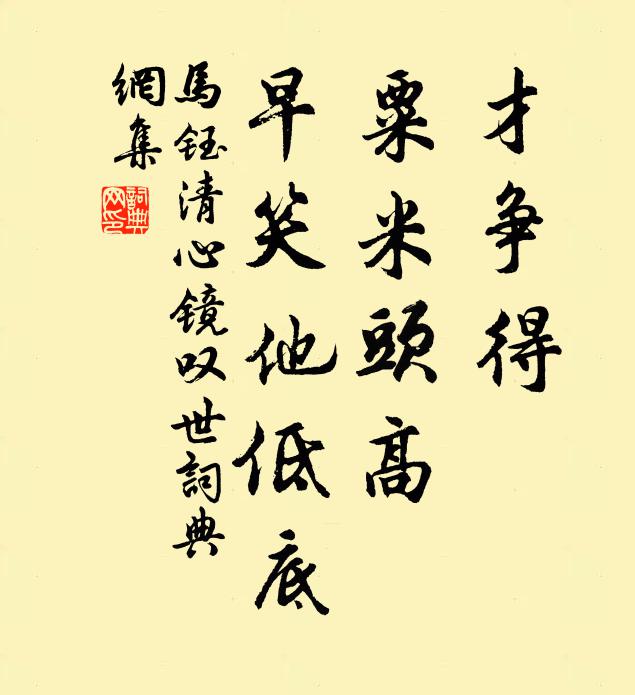 才争得
粟米頭高
早笑他低底
馬鈺清心镜叹世詞典
網集
詞典网印